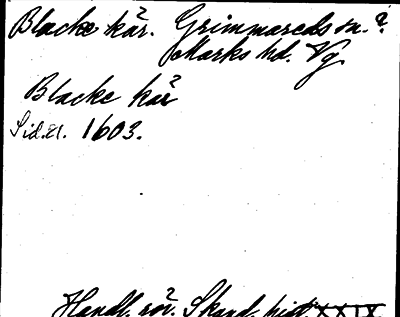 Blacke kär. Grimmareds sn.?
Marks hd. Vg.
Blacke kär
Sid. 21. 1603.
Handl. rör. Skand. hist. XXIX